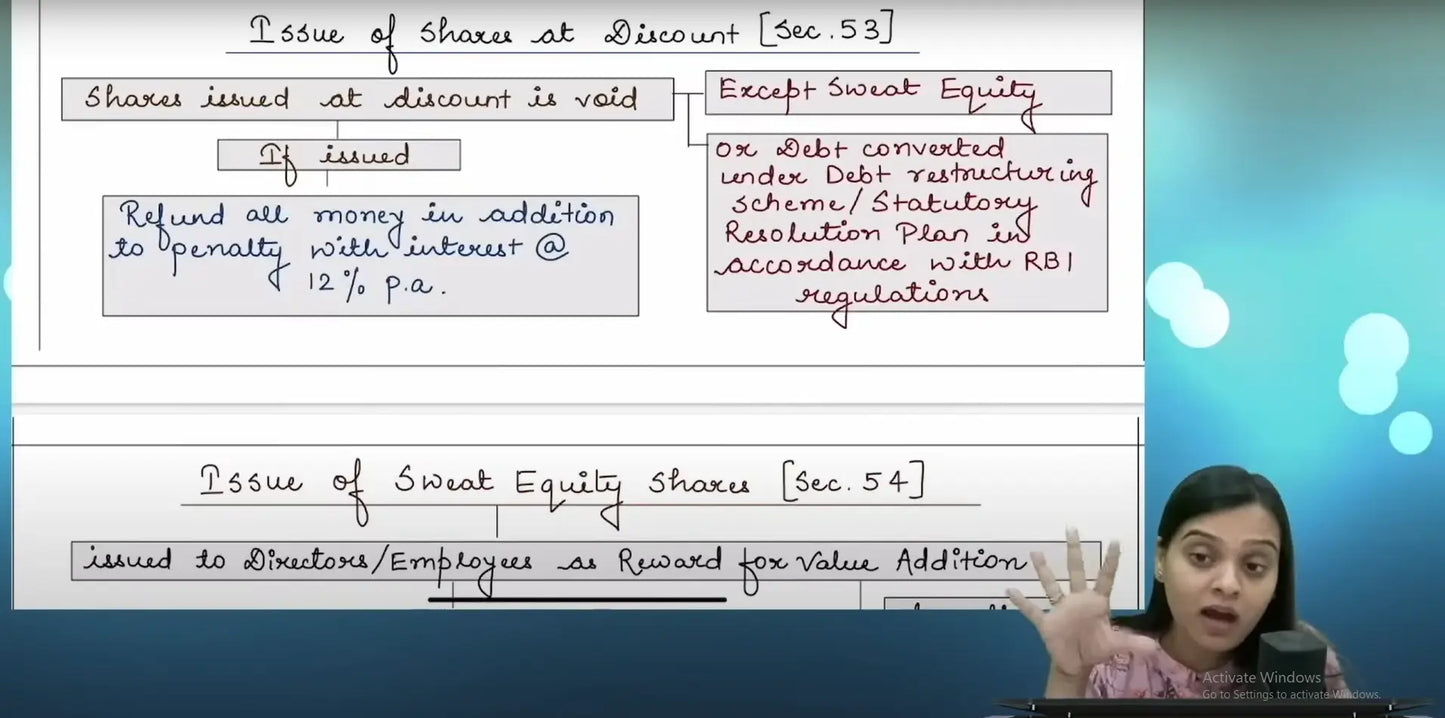 Issue of Shares at Discount [Sec. 53]
Shares issued at discount is void
Except Sweat Equity
If issued
or Debt converted
under Debt restructuring
scheme/Statutory
Resolution Plan in
accordance with RBI
regulations
Refund all money in addition
to penalty with interest @
12% p.a.
Issue of Sweat Equity Shares [Sec. 54]
issued to Directors/Employees as Reward for Value Addition
Activate Windows
Go to Settings to activate Windows.